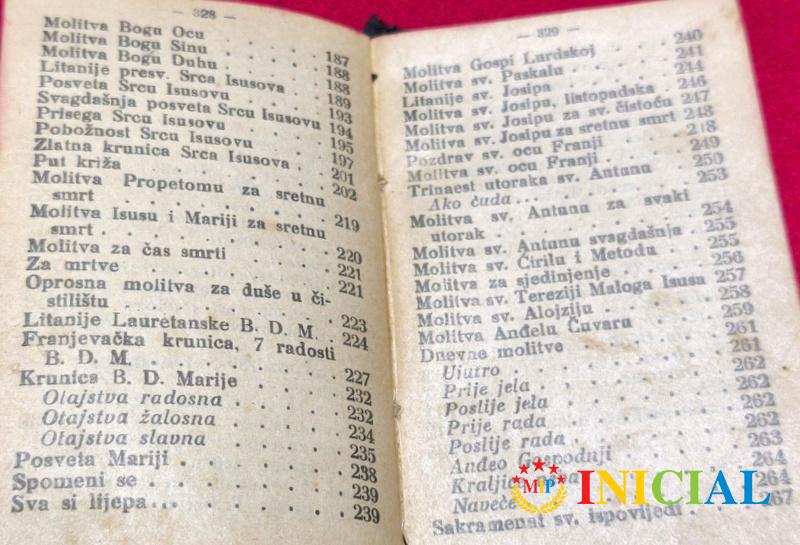 — 328 —
Molitva Bogu Ocu . . . . . 187
Molitva Bogu Sinu . . . . . 188
Molitva Bogu Duhu . . . . . 188
Litanije presv. Srca Isusova . 189
Posveta Srcu Isusovu . . . . 193
Svagdašnja posveta Srcu Isusovu 194
Prisega Srcu Isusovu . . . . 195
Pobožnost Srcu Isusovu . . . 197
Zlatna krunica Srca Isusova . . 201
Put križa . . . . . . . 202
Molitva Propetomu za sretnu
smrt . . . . . . . . 219
Molitva Isusu i Mariji za sretnu
smrt . . . . . . . . 220
Molitva za čas smrti . . . . 221
Za mrtve . . . . . . . 221
Oprosna molitva za duše u či-
stilištu . . . . . . . 223
Litanije Lauretanske B. D. M. . 224
Franjevačka krunica, 7 radosti
B. D. M. . . . . . . . 227
Krunica B. D. Marije . . . . 232
Otajstva radosna . . . . . 232
Otajstva žalosna . . . . . 234
Otajstva slavna . . . . . 235
Posveta Mariji . . . . . . 238
Spomeni se . . . . . . . 239
Sva si lijepa . . . . . . . 239
— 329 —
Molitva Gospi Lurdskoj . . . 240
Molitva sv. Paskalu . . . . 241
Litanije sv. Josipa . . . . . 244
Molitva sv. Josipu, listopadska . 246
Molitva sv. Josipu za sv. čistoću 247
Molitva sv. Josipu za sretnu smrt 248
Pozdrav sv. ocu Franji . . . 248
Molitva sv. ocu Franji . . . . 249
Trinaest utoraka sv. Antunu . 250
Ako čuda . . . . . . . 253
Molitva sv. Antunu za svaki
utorak . . . . . . . 254
Molitva sv. Antunu svagdašnja . 255
Molitva sv. Ćirilu i Metodu . . 255
Molitva za sjedinjenje . . . . 256
Molitva sv. Tereziji Maloga Isusa 257
Molitva sv. Alojziju . . . . 258
Molitva Anđelu Čuvaru . . . 259
Dnevne molitve . . . . . . 261
Ujutro . . . . . . . . 261
Prije jela . . . . . . . 262
Poslije jela . . . . . . . 262
Prije rada . . . . . . . 262
Poslije rada . . . . . . 262
Anđeo Gospodnji . . . . 263
264
Naveče 264
Sakramenat sv. ispovijedi . . . 267
MP INICIAL